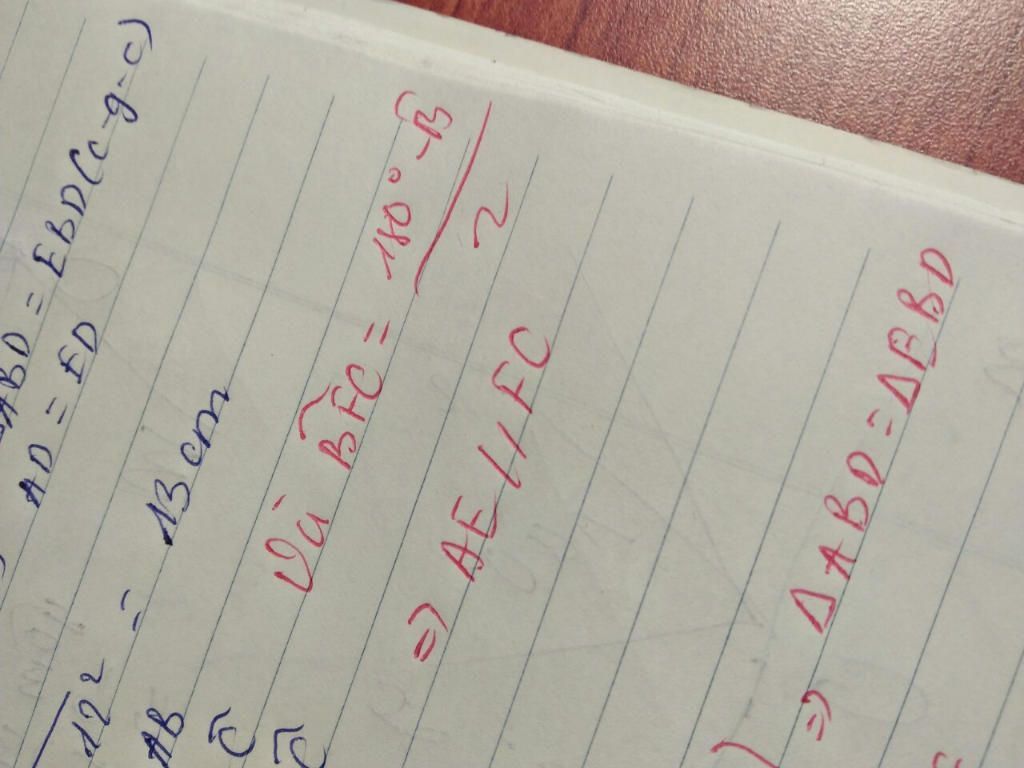 ABD = EBD (c-g-c)
AD = ED
12² = 13 cm
AB
Ĉ
Ĉ
Và B̂FC = 180° - B̂ / 2
=> AE // FC
=> ΔABD = ΔEBD